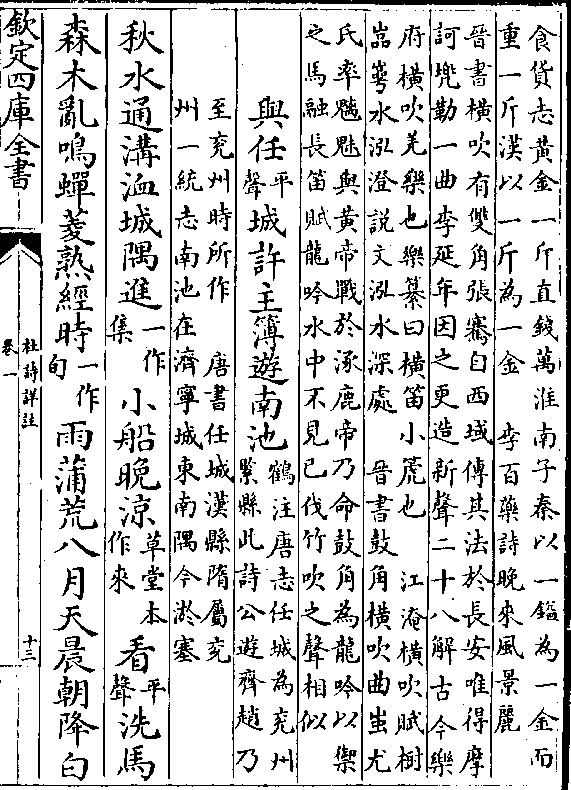 食貨志黄金一斤直錢萬淮南子秦以一鎰為一金而
重一斤漢以一斤為一金　李百藥詩晚來風景麗
晉書横吹有雙角張騫自西域傳其法於長安唯得摩
訶兠勒一曲李延年因之更造新聲二十八解古今樂
府横吹羌樂也樂纂曰横笛小篪也　江淹横吹賦樹
嵓崿水泓澄説文泓水深處　晉書鼓角横吹曲蚩尤
氏率魑魅與黄帝戰於涿鹿帝乃命鼓角為龍吟以禦
之馬融長笛賦龍吟水中不見已伐竹吹之聲相似
與任平聲城許主簿遊南池鶴注唐志任城為兖州緊縣此詩公遊齊趙乃
至兖州時所作　唐書任城漢縣隋屬兖
州一統志南池在濟寧城東南隅今淤塞
秋水通溝洫城隅進一作集小船晚凉草堂本作來看平聲洗馬
森木亂鳴蟬菱熟經時一作旬雨蒲荒八月天晨朝降白
欽定四庫全書
杜詩詳註
卷一
十三